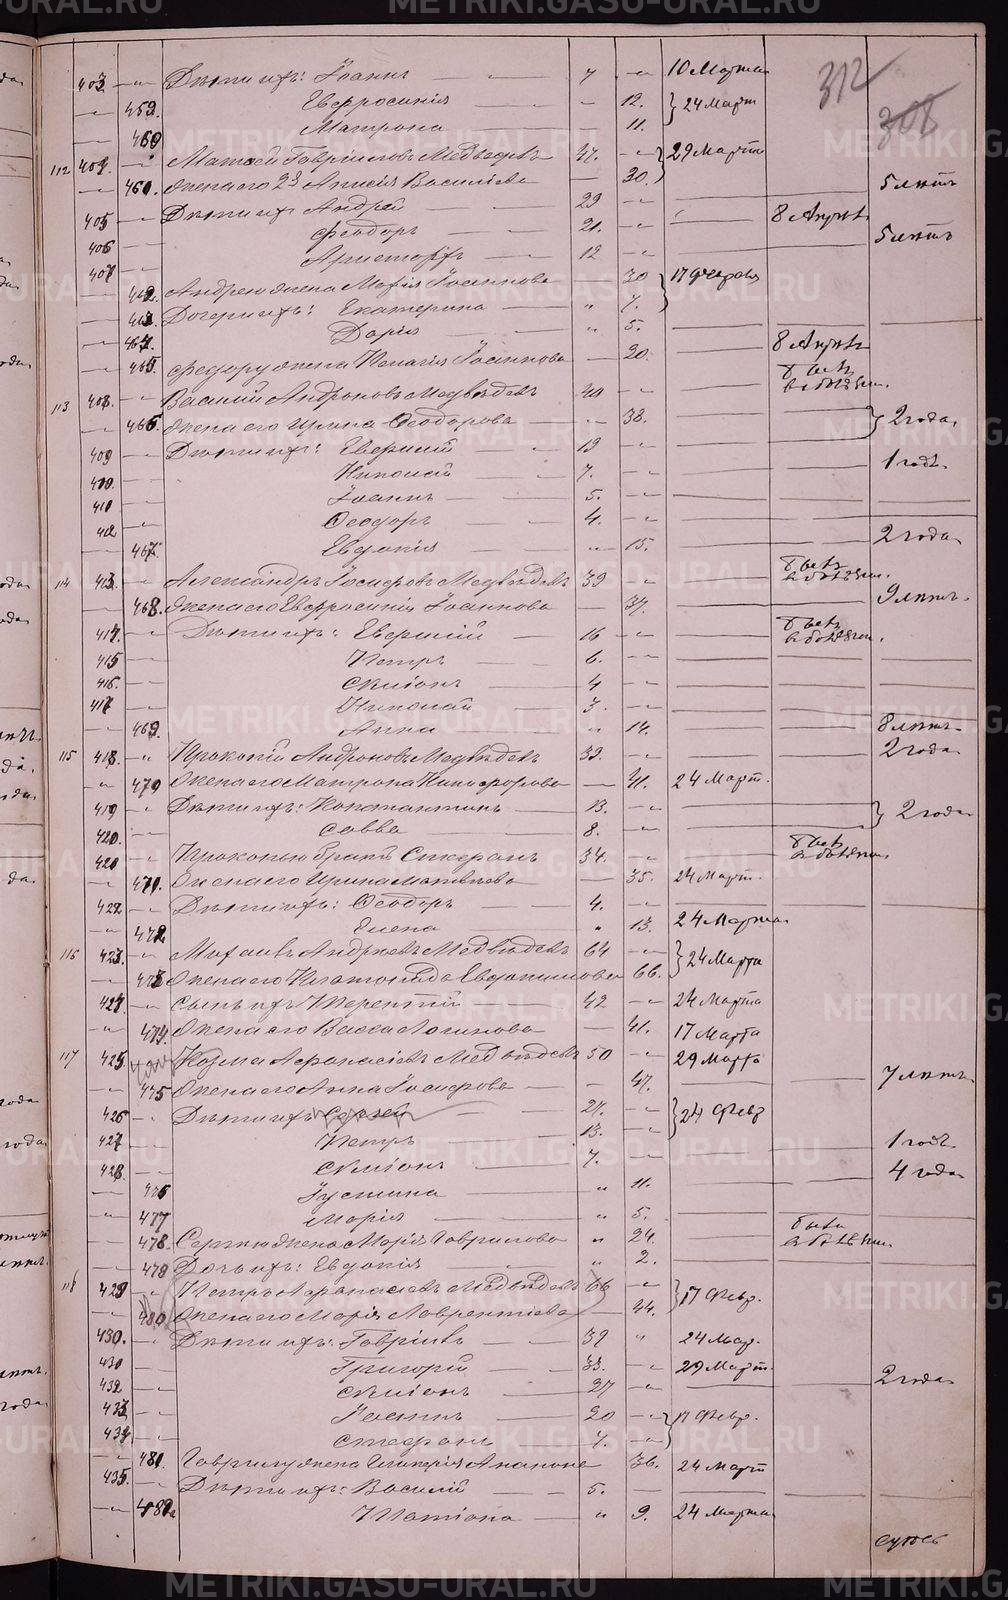 312
308
403. Дѣти ихъ: Іоаннъ 7 10 Марта
459. Евфросинія 12. 24 Март
460 Матрона 11.
112 404. Матѳей Гавриловъ Медведевъ 47. 29 Март
461. жена его 2я Анисія Васильева 30. 5 лѣтъ
405 Дѣти ихъ Андрей 29 8 Апрѣл
406 Феодоръ 21. 5 лѣтъ
407 Аристархъ 12
462. Андрею жена Марія Іоаннова 30 17 Февраля
463. Дочери ихъ: Екатерина 7.
464. Дарія 5.
465 Феодору жена Пелагія Іоаннова 20. 8 Апрѣл
113 408. Василій Андроновъ Медвѣдевъ 40
466. жена его Ирина Ѳеодорова 38. 2 года
409 Дѣти ихъ: Евгеній 19
410. Николай 7. 1 годъ
411 Іоаннъ 5.
412 Ѳеодоръ 4.
467. Евдокія 15. 2 года
114 413. Александръ Іосифовъ Медвѣдевъ 39
468. жена его Евфросинія Іоаннова 37. 9 лѣтъ
414. Дѣти ихъ: Евгеній 16
415 Петръ 6.
416. Симіонъ 4
417 Николай 3.
469. Анна 14. 8 лѣтъ
115 418. Прокопій Андроновъ Медвѣдевъ 39. 2 года
470 жена его Матрона Никифорова 41. 24 Март.
419 Дѣти ихъ: Константинъ 13. 2 года
420. Савва 8.
421 Прокопью братъ Стефанъ 34.
471. жена его Ирина Матвѣева 35. 24 Март.
422 Дѣти ихъ: Ѳеодоръ 4.
472 Елена 13. 24 Марта
116 423. Михаилъ Андреевъ Медвѣдевъ 64 24 Марта
473 жена его Клеопатра Евдокимова 66.
424. Сынъ ихъ Терентій 42 24 Марта
474. жена его Васса Логинова 41. 17 Марта
117 425. Козма Афанасіевъ Медвѣдевъ 50 29 Марта
475 жена его Анна Іосифова 47. 7 лѣтъ
426 Дѣти ихъ Сергей 27. 24 Февр
427 Петръ 13. 1 годъ
428. Симіонъ 7. 4 года
476 Іустина 11.
477 Марія 5.
478. Сергию жена Марія Гаврилова 24.
479 Дочь ихъ: Евдокія 2.
118 429 Петръ Афанасіевъ Медвѣдевъ 66 17 Февр.
480 жена его Марія Лаврентіева 44.
430. Дѣти ихъ: Гавріилъ 39 24 Мар.
431 Григорій 33. 29 Март.
432 Симіонъ 27 2 года
433 Іоаннъ 20 17 Февр.
434 Стефанъ 7.
481. Гаврилу жена 36. 24 Март
435. Дѣти ихъ: Василій 5.
482 9. 24 Марта
METRIKI.GASO-URAL.RU